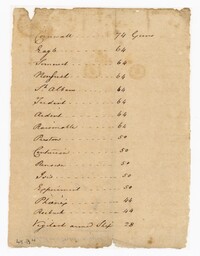 Cornwall 74 Guns
Eagle 64
Somerset 64
Nonsuch 64
St Albans 64
Trident 64
Ardent 64
Raisonable 64
Preston 50
Centurion 50
Renown 50
Isis 50
Experiment 50
Phœnix 44
Roebuck 44
Vigilant armed Ship 20